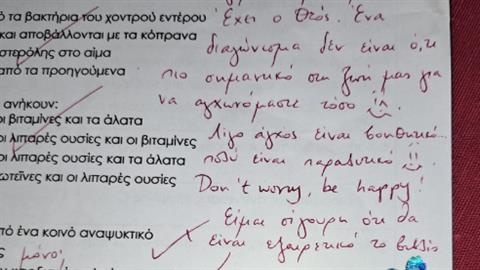 ό τα βακτήρια του χοντρού εντέρου
και αποβάλλονται με τα κόπρανα
στερόλης στο αίμα
από τα προηγούμενα
Έχει ο Θεός. Ένα
διαγώνισμα δεν είναι ό,τι
πιο σημαντικό στη ζωή μας για
να αγχωνόμαστε τόσο
Λίγο άγχος είναι βοηθητικό...
πολύ είναι παραλυτικό!
Don't worry, be happy!
Είμαι σίγουρη ότι θα
είναι εξαιρετικό το
ανήκουν:
οι βιταμίνες και τα άλατα
οι λιπαρές ουσίες και οι βιταμίνες
οι λιπαρές ουσίες και τα άλατα
ωτεΐνες και οι λιπαρές ουσίες
πό ένα κοινό αναψυκτικό
ς μόνο;